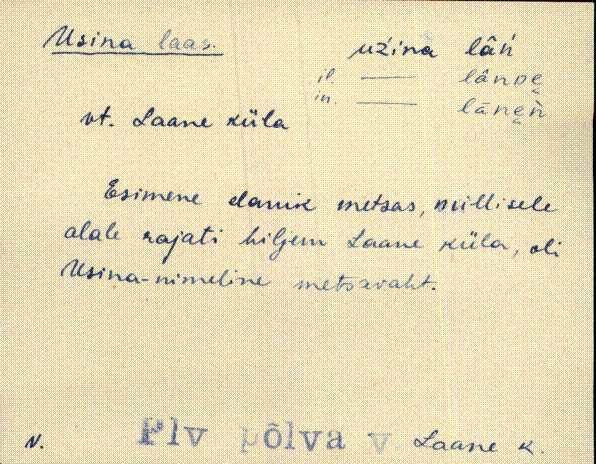 Usina laas. užina lâń
il. — lânDe̮
in. — lāne̮ǹ
vt. Laane küla
Esimene elanik metsas, millisele
alale rajati hiljem Laane küla, oli
Usina-nimeline metsavaht.
N. Plv põlva v. Laane k.